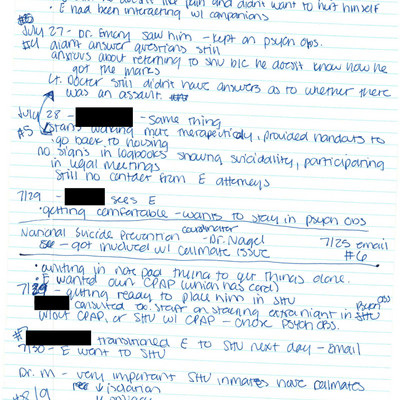 doesn't like pain and didn't want to hurt himself
• E had been interacting w/ companions
#5
July 27 - Dr. Emery saw him - kept on psych obs.
didnt answer questions still
anxious about returning to shu b/c he doesnt know how he
got the marks
Lt. Doctor still didn't have answers as to whether there
was an assault.
July 28 - - same thing
#5 starts working more therapeutically, provided handouts to
go back to housing
no signs in logbooks showing suicidality, participating
in legal meetings
still no contact from E attorneys
7/29 - sees E
• getting comfortable - wants to stay in psych obs
National Suicide Prevention coordinator - Dr. Nagel 7/25 email
- got involved w/ cellmate issue #6
• writing in note pad trying to get things done.
• E wanted own CPAP (which has card)
7/29 - getting ready to place him in SHU
consulted staff on staying extra night in psych obs
w/out CPAP, or SHU w/ CPAP - chose psych obs.
transitioned E to SHU next day - Email
7/30 - E went to SHU
Dr. M - very important SHU inmates have cellmates
isolation